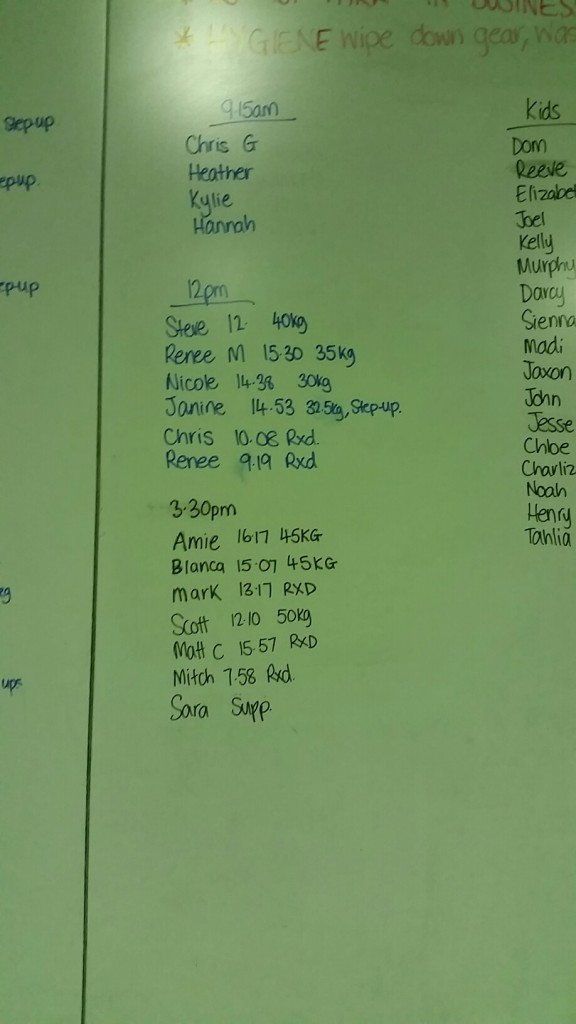 IN BUSINES
* HYGIENE wipe down gear, was
step-up
epup.
epup
ups
9.15am
Chris G
Heather
Kylie
Hannah
12pm
Steve 12. 40kg
Renee M 15.30 35kg
Nicole 14.38 30kg
Janine 14.53 32.5kg, Step-up.
Chris 10.08 Rxd.
Renee 9.19 Rxd
3.30pm
Amie 16.17 45KG
Blanca 15.07 45KG
mark 13.17 RXD
Scott 12.10 50kg
Matt C 15.57 RXD
Mitch 7.58 Rxd.
Sara Supp.
Kids
Dom
Reeve
Elizabet
Joel
Kelly
Murphy
Darcy
Sienna
Madi
Jaxon
John
Jesse
Chloe
Charliz
Noah
Henry
Tahlia